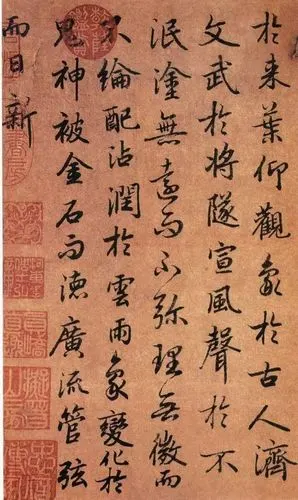 於来葉仰觀象於古人濟
文武於將隧宣風聲於不
泯塗無遠而不弥理無微而
不綸配沾潤於雲雨象變化於
鬼神被金石而德廣流管弦
而日新